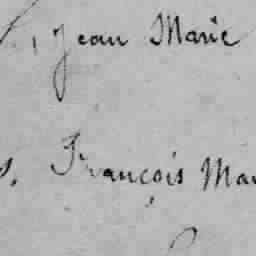 , Jean Marie
s. François Mar